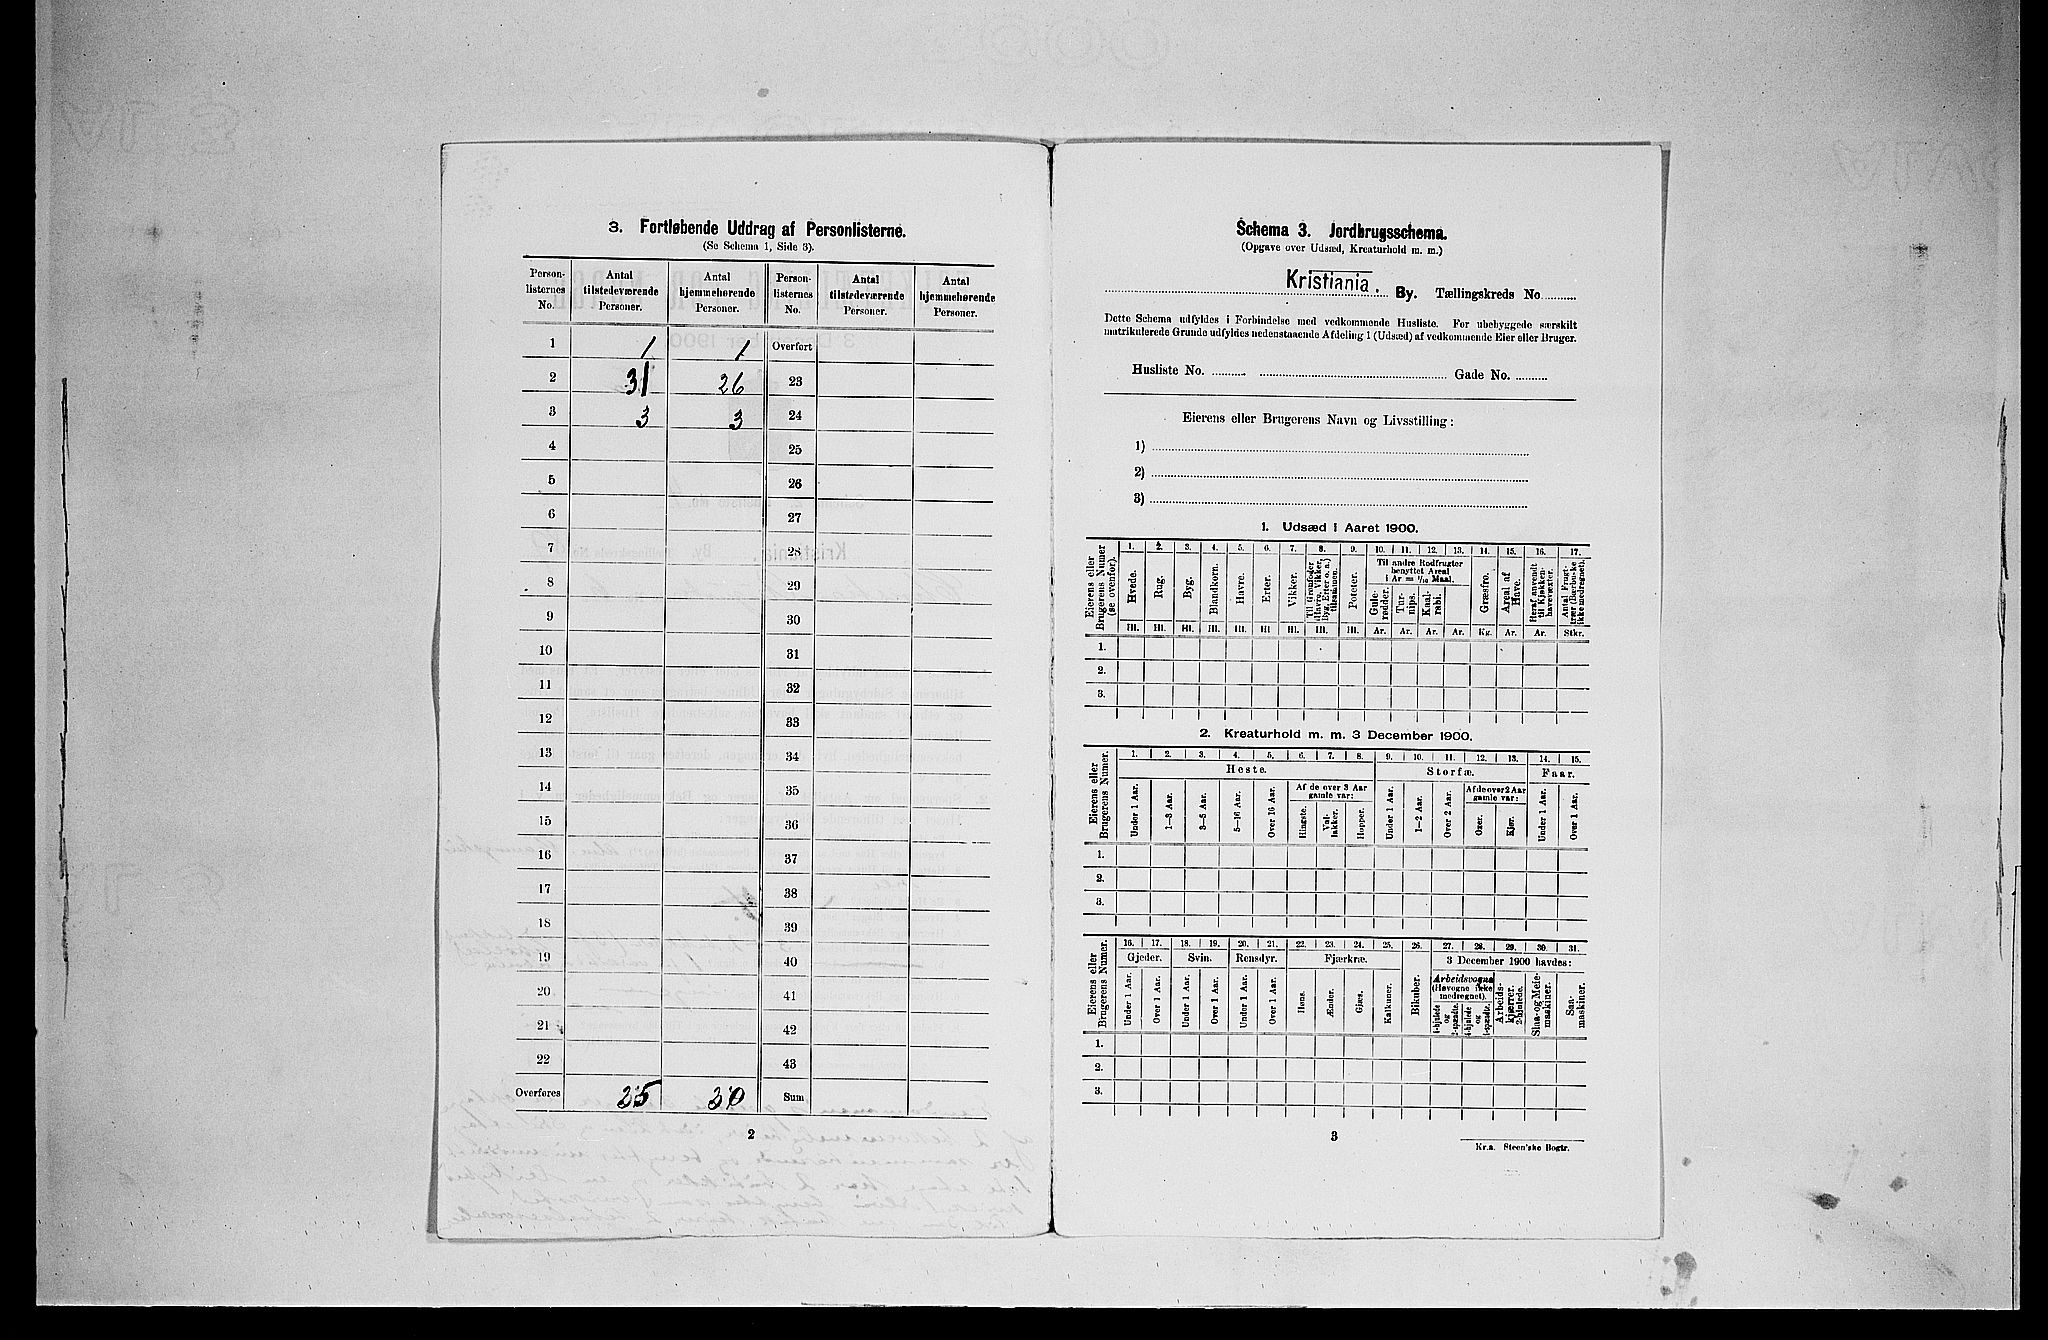 3. Fortløbende Uddrag af Personlisterne.
(Se Schema 1, Side 3).
Person-listernes No. | Antal tilstedeværende Personer. | Antal hjemmehørende Personer. | Person-listernes No. | Antal tilstedeværende Personer. | Antal hjemmehørende Personer.
1 | 1 | 1 | Overført
2 | 31 | 26 | 23
3 | 3 | 3 | 24
4 | 25
5 | 26
6 | 27
7 | 28
8 | 29
9 | 30
10 | 31
11 | 32
12 | 33
13 | 34
14 | 35
15 | 36
16 | 37
17 | 38
18 | 39
19 | 40
20 | 41
21 | 42
22 | 43
Overføres | 35 | 30 | Sum
2
Schema 3. Jordbrugsschema.
(Opgave over Udsæd, Kreaturhold m. m.)
Kristiania. By. Tællingskreds No.
Dette Schema udfyldes i Forbindelse med vedkommende Husliste. For ubebyggede særskilt
matrikulerede Grunde udfyldes nedenstaaende Afdeling 1 (Udsæd) af vedkommende Eier eller Bruger.
Husliste No. Gade No.
Eierens eller Brugerens Navn og Livsstilling:
1)
2)
3)
1. Udsæd i Aaret 1900.
Eierens eller Brugerens Numer (se ovenfor).
1. 2. 3. 4. 5. 6. 7. 8. 9. 10. 11. 12. 13. 14. 15. 16. 17.
Hvede. Rug. Byg. Blandkorn. Havre. Erter. Vikker. Til Grønfoder (Havre, Vikker, Byg, Erter o. a.) tilsammen. Poteter.
Til andre Rodfrugter benyttet Areal i Ar = 1/10 Maal.
Gule-rødder. Tur-nips. Kaal-rabi. Græsfrø. Areal af Have. Heraf anvendt til Kjøkken-havevæxter. Antal Frugt-trær (Bærbuske ikke medregnet).
Hl. Hl. Hl. Hl. Hl. Hl. Hl. Hl. Hl. Ar. Ar. Ar. Ar. Kg. Ar. Ar. Stkr.
1.
2.
3.
2. Kreaturhold m. m. 3 December 1900.
Eierens eller Brugerens Numer.
1. 2. 3. 4. 5. 6. 7. 8. 9. 10. 11. 12. 13. 14. 15.
Heste. Storfæ. Faar.
Under 1 Aar. 1—3 Aar. 3—5 Aar. 5—16 Aar. Over 16 Aar. Af de over 3 Aar gamle var: Hingste. Val-lakker. Hopper. Under 1 Aar. 1—2 Aar. Over 2 Aar. Af de over 2 Aar gamle var: Oxer. Kjør. Under 1 Aar. Over 1 Aar.
1.
2.
3.
Eierens eller Brugerens Numer.
16. 17. 18. 19. 20. 21. 22. 23. 24. 25. 26. 27. 28. 29. 30. 31.
Gjeder. Svin. Rensdyr. Fjærkræ. 3 December 1900 havdes:
Under 1 Aar. Over 1 Aar. Under 1 Aar. Over 1 Aar. Under 1 Aar. Over 1 Aar. Høns. Ænder. Gjæs. Kalkuner. Bikuber. Arbeidsvogne (Høvogne ikke medregnet). 4-hjulede og 2-spændte. 4-hjulede og 1-spændte. Arbeids-kjærrer. 2-hjulede. Slaa- og Meie-maskiner. Saa-maskiner.
1.
2.
3.
3
Kr.a. Steen'ske Bogtr.